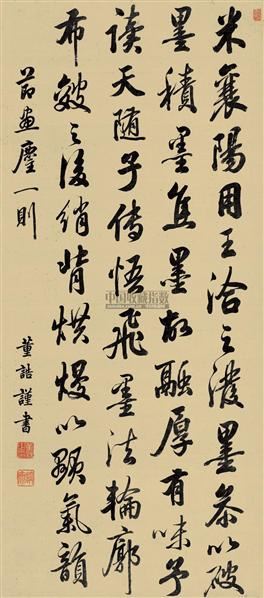 米襄陽用王洽之潑墨參以破
墨積墨焦墨故融厚有味予
讀天隨子傳悟飛墨法輪廓
布皴之後綃背烘熳以顯氣韻
節畫麈一則
董誥謹書
中国收藏指数